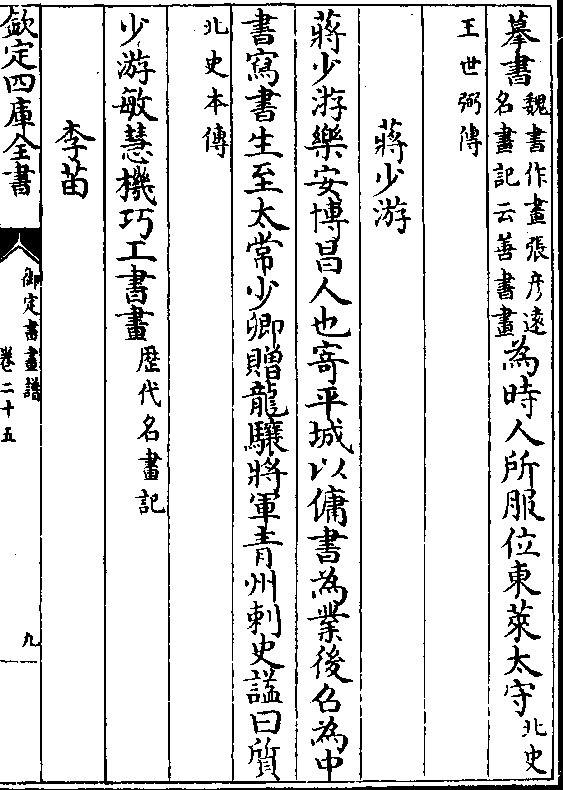 摹書魏書作畫張彦遠名畫記云善書畫為時人所服位東萊太守北史
王世弼傳
蔣少游
蔣少游樂安博昌人也寄平城以傭書為業後召為中
書寫書生至太常少卿贈龍驤將軍青州刺史諡曰質
北史本傳
少游敏慧機巧工書畫歴代名畫記
李苗
欽定四庫全書
御定書畫譜
卷二十五
九